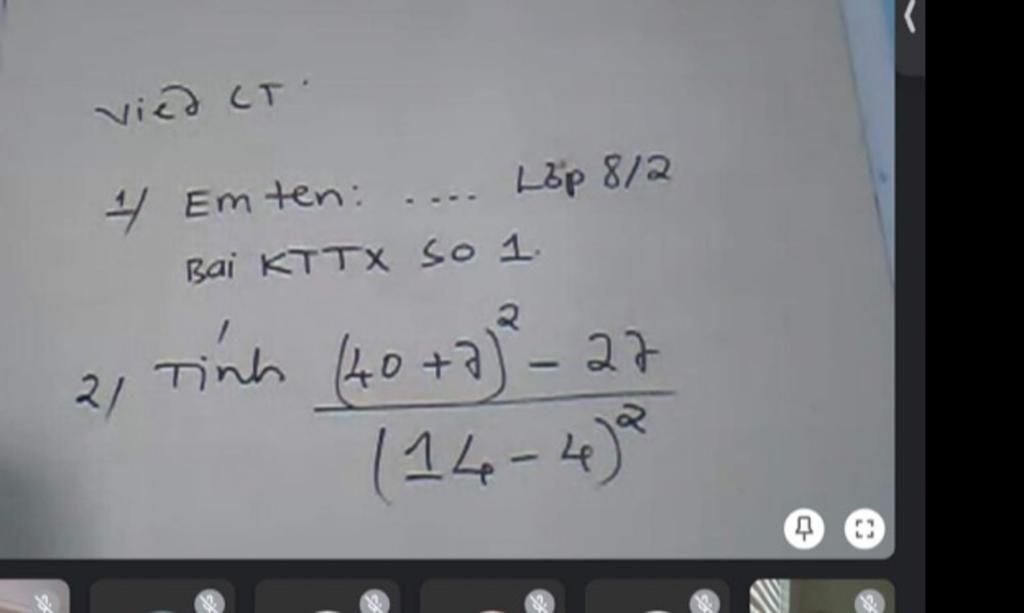 Viết CT
1/ Em ten: .... Lớp 8/2
Bai KTTX so 1.
2/ Tính ((40+7)² - 27)/(14-4)²